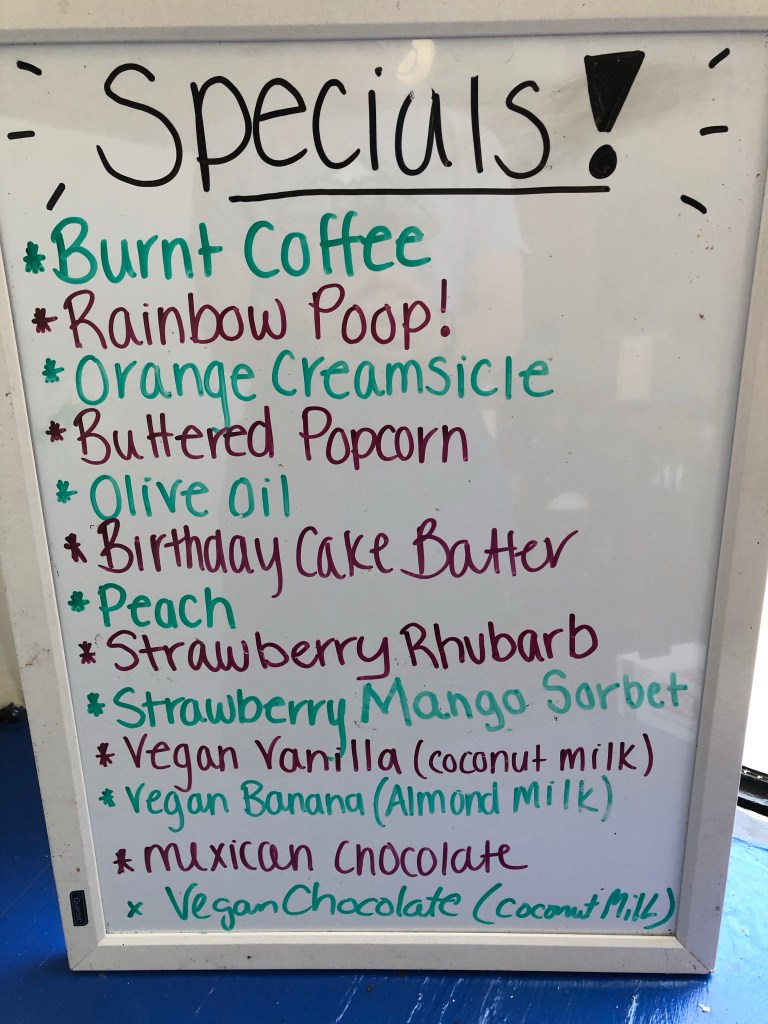 Specials!
* Burnt Coffee
* Rainbow Poop!
* Orange Creamsicle
* Buttered Popcorn
* Olive Oil
* Birthday Cake Batter
* Peach
* Strawberry Rhubarb
* Strawberry Mango Sorbet
* Vegan Vanilla (coconut milk)
* Vegan Banana (Almond Milk)
* Mexican Chocolate
x Vegan Chocolate (coconut Milk)